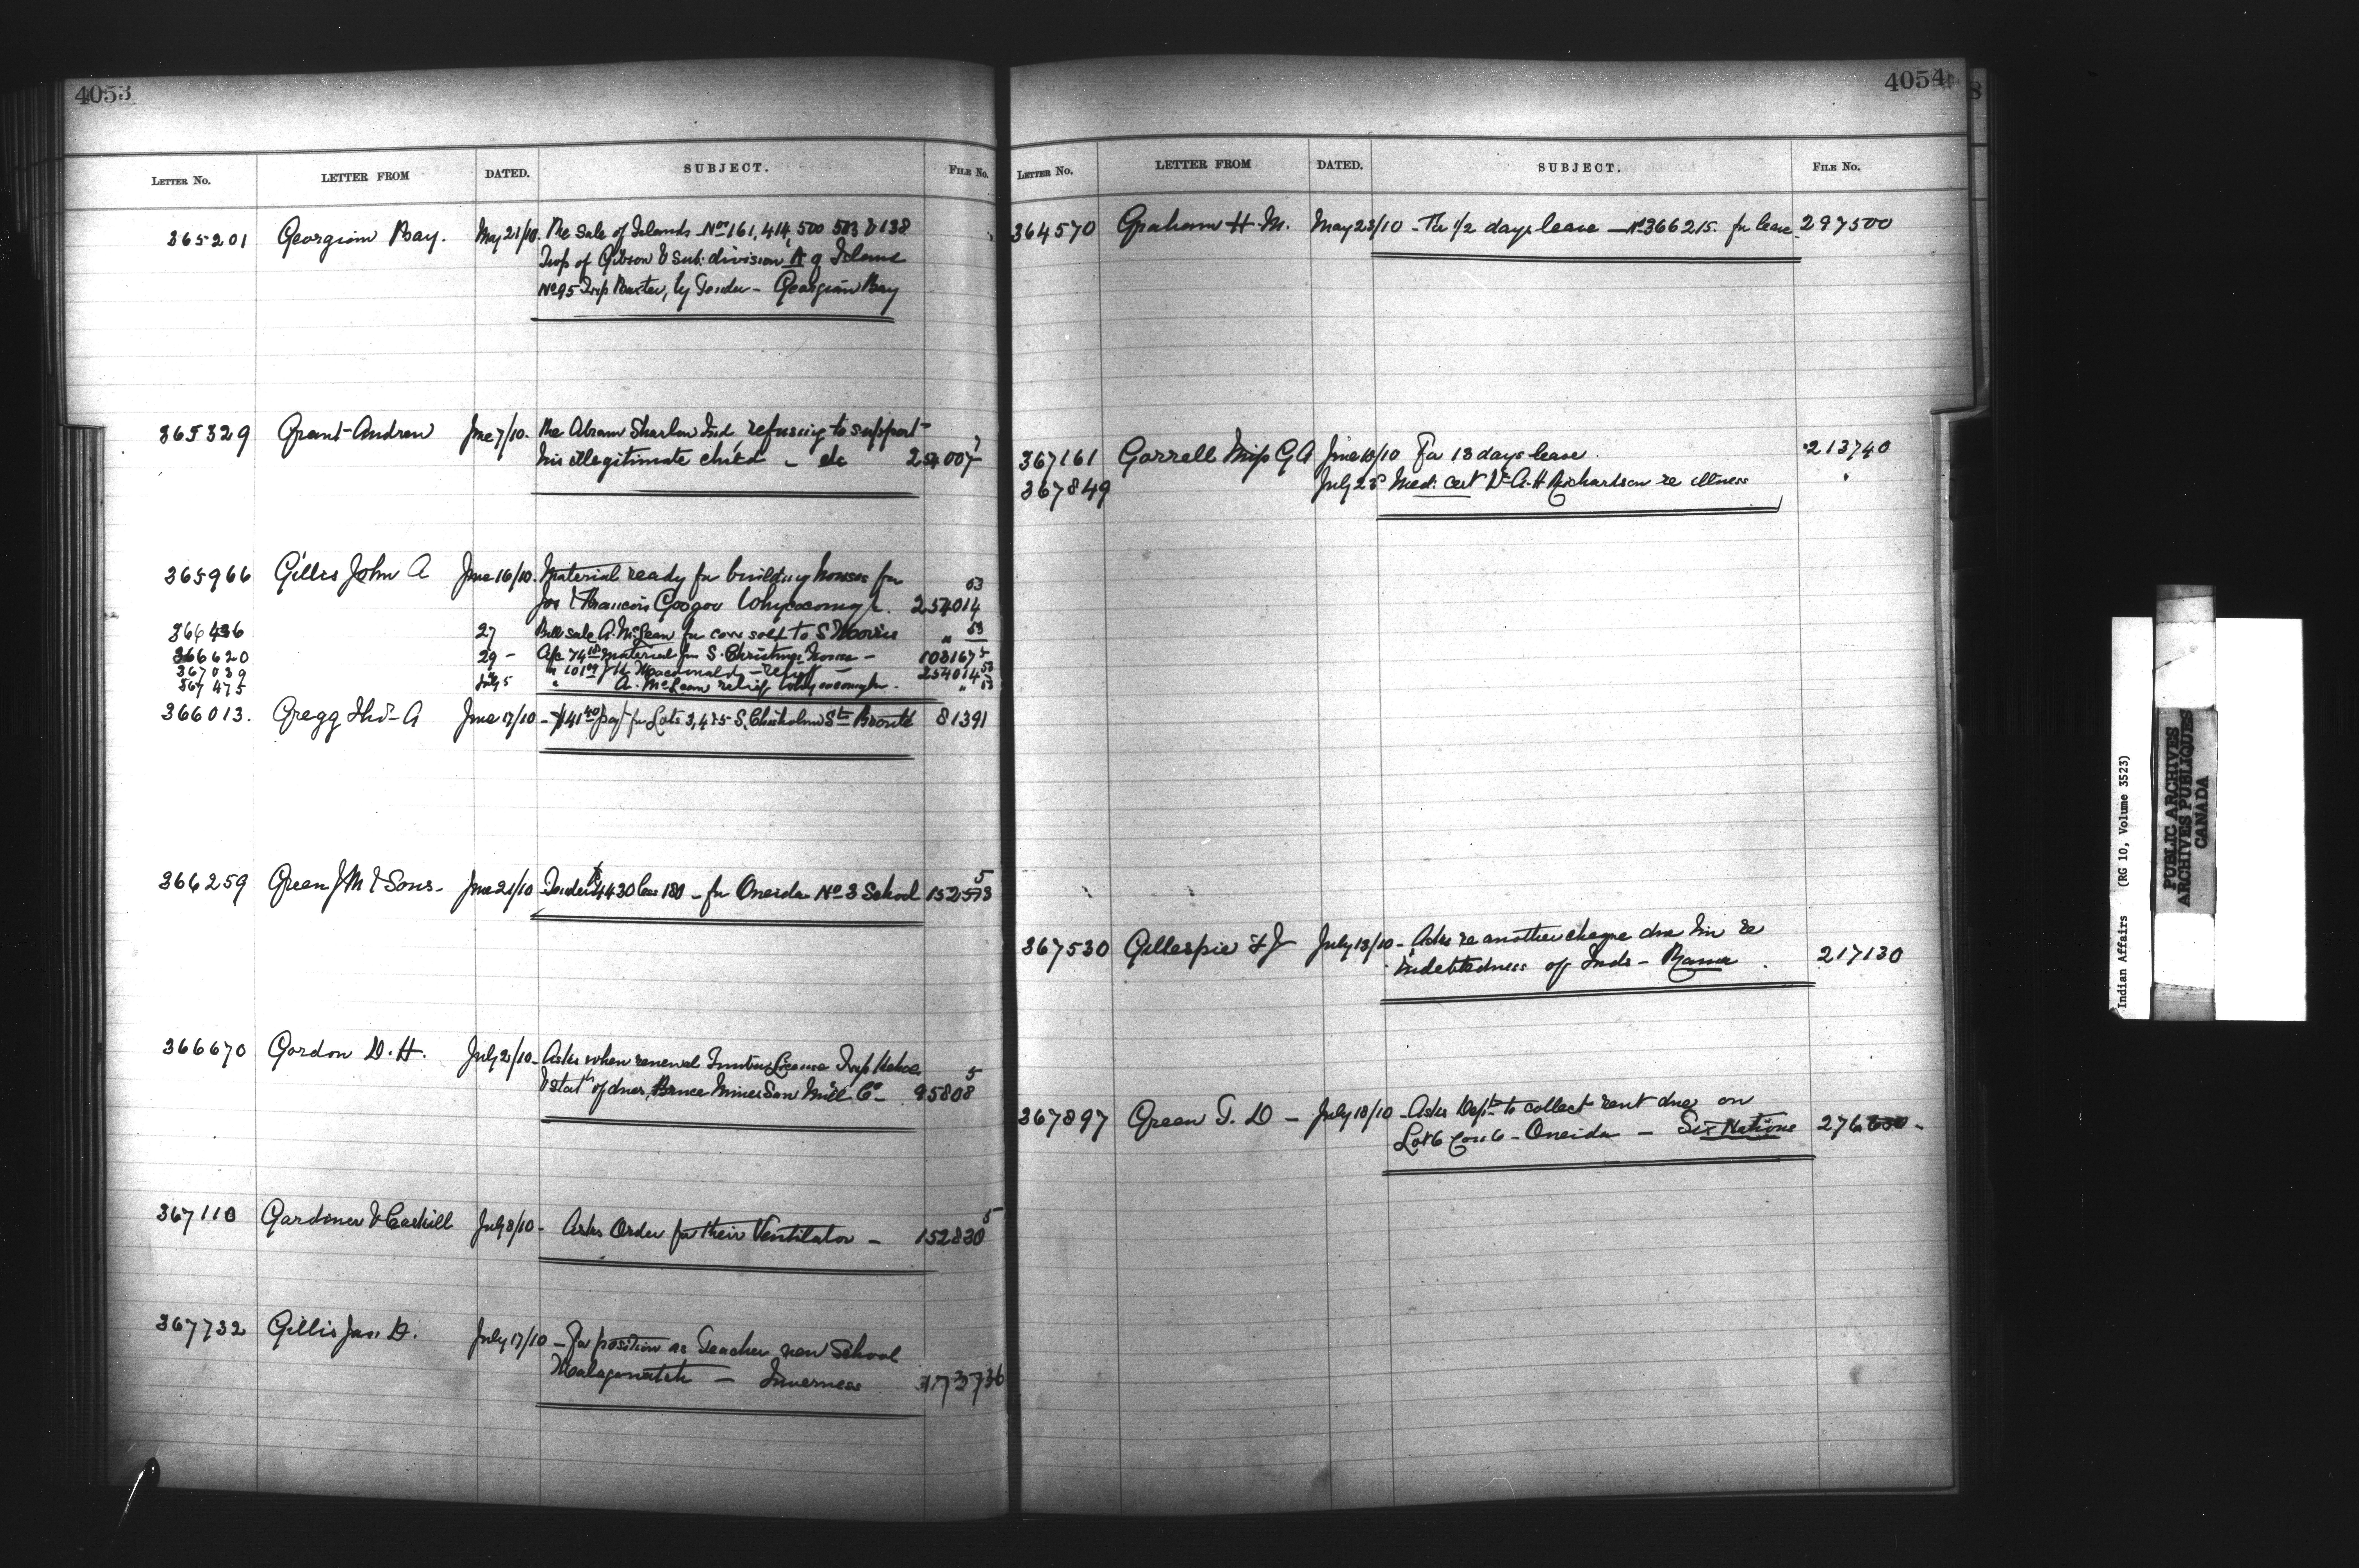 4053
LETTER No. LETTER FROM DATED. SUBJECT. FILE No.
365201 Georgian Bay. May 21/10. The Sale of Islands Nos 161, 414, 500 503 & 138
Twp of Gibson & Sub-division A of Island
No 95 Twp Baxter, by Tender - Georgian Bay
365329 Grant Andrew June 7/10. The Abram Ind refusing to support
his illegitimate child - etc 254007
365966 Gillis John A June 16/10. Material ready for building houses for
53
Jos & Francois Googoo Whycocomagh. 254014
366436 27 Bill sale A. McLean for cow sold to S " 53
366620 29 - a/c 74 material for S. Christmas house - 103167 5
367039 " J H Macdonald - relief - 254014 53
367475 July 5 " A. McLean relief Whycocomagh. " 53
366013. Gregg Thos A June 17/10 - $41 40 pay't for Lots 3, 4 & 5 S. Chisholm St Bronte 81391
366259 Green J M & Sons - June 21/10 Tender $4430 less 180 - for Oneida No 3 School 152573 5
366670 Gordon D. H. July 2/10 - Asks when renewal Timber License Twp Kehoe
& stat of dues, Bruce Mines Saw Mill Co - 95808 5
367110 Gardiner & Caskill July 8/10 - Asks Order for their Ventilator - 152830 5
367732 Gillis Jas. D. July 17/10 - For position as Teacher new School
Malagawatch - Inverness 373736
4054
LETTER No. LETTER FROM DATED. SUBJECT. FILE No.
364570 Graham H. M. May 23/10 - The 1/2 days leave - No 366215 for leave 297500
367161 Gorrell Miss G A June 10/10 For 18 days leave. 213740
367849 July 22 Med. Cert Dr A. H Richardson re illness "
367530 Gillespie F J July 13/10 - Asks re another cheque due him re
indebtedness of Inds - Rama. 217130
367897 Green T. D - July 18/10 - Asks Dept to collect rent due on
Lot 6 Con 6 - Oneida - Six Nations 276
Indian Affairs (RG 10, Volume 3523)
PUBLIC ARCHIVES
ARCHIVES PUBLIQUES
CANADA